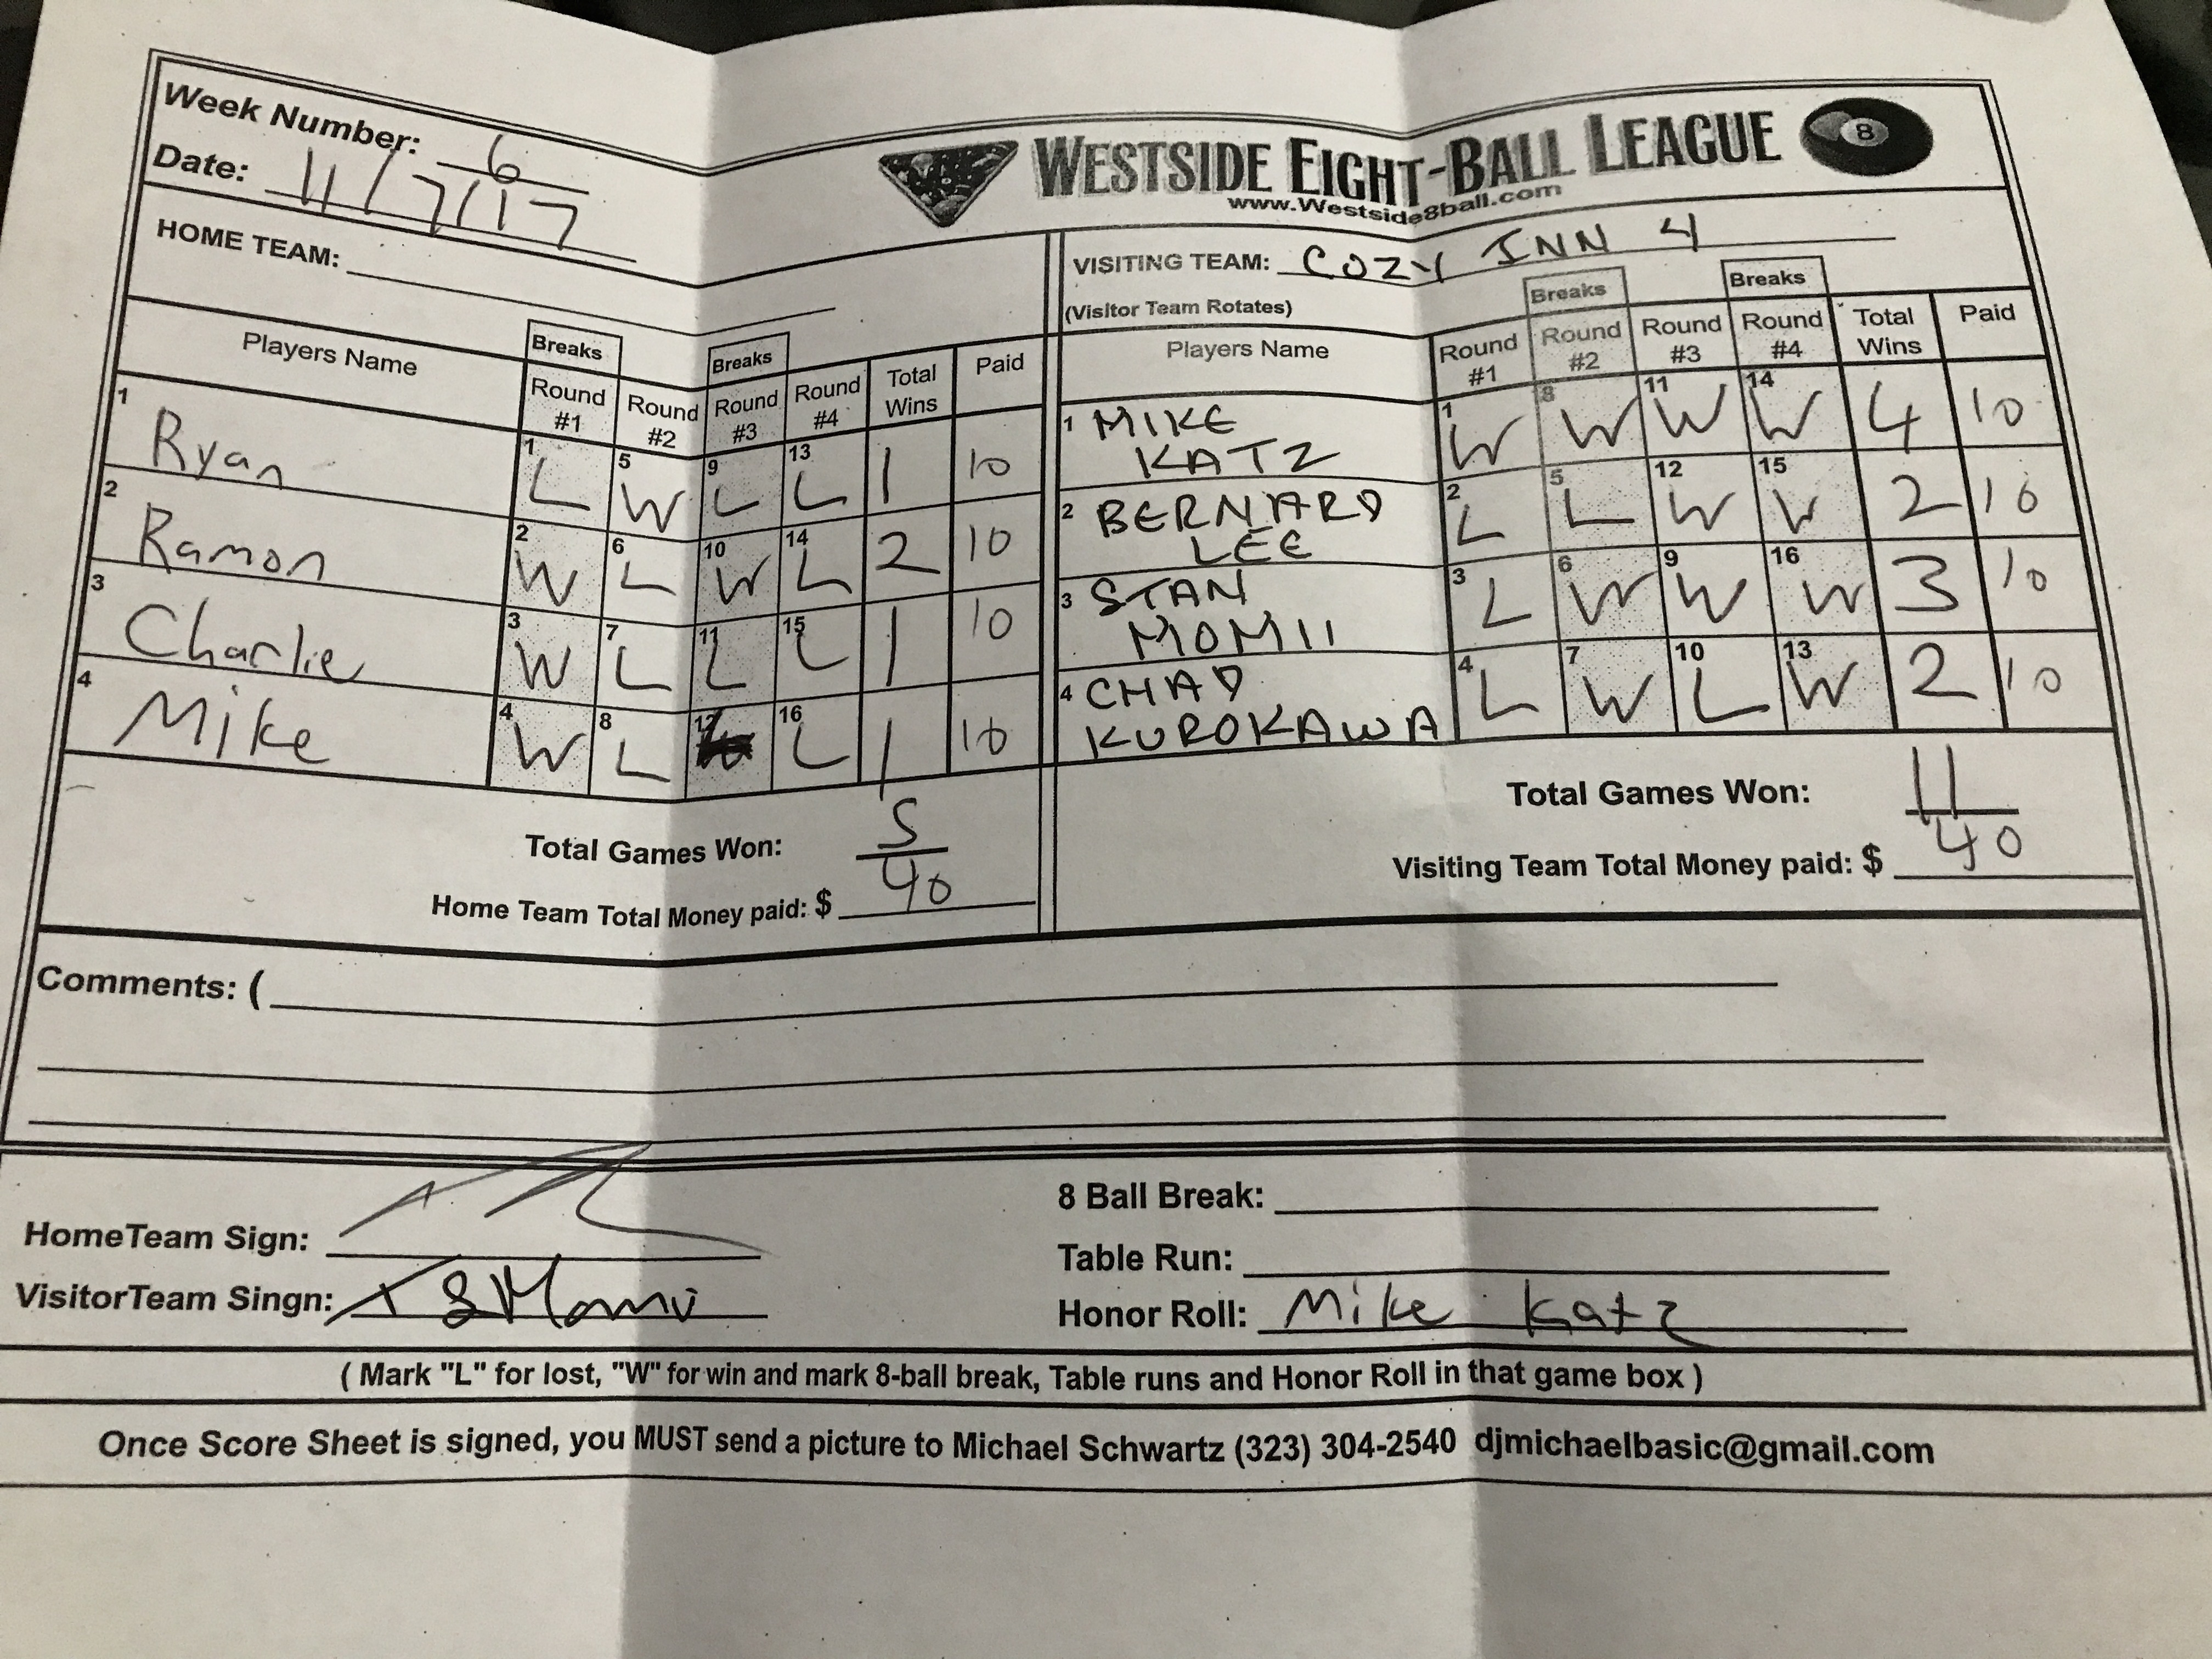 Week Number: 6
Date: 11/7/17
WESTSIDE EIGHT-BALL LEAGUE 8
www.Westside8ball.com
HOME TEAM:
Players Name Breaks Round #1 Round #2 Breaks Round #3 Round #4 Total Wins Paid
1 Ryan 1 L 5 W 9 L 13 L 1 10
2 Ramon 2 W 6 L 10 W 14 L 2 10
3 Charlie 3 W 7 L 11 L 15 L 1 10
4 Mike 4 W 8 L 12 16 L 1 10
Total Games Won: 5
Home Team Total Money paid: $ 40
VISITING TEAM: COZY INN 4
(Visitor Team Rotates)
Players Name Round #1 Breaks Round #2 Round #3 Breaks Round #4 Total Wins Paid
1 MIKE KATZ 1 W 8 W 11 W 14 W 4 10
2 BERNARD LEE 2 L 5 L 12 W 15 W 2 10
3 STAN MOMII 3 L 6 W 9 W 16 W 3 10
4 CHAD KUROKAWA 4 L 7 W 10 L 13 W 2 10
Total Games Won: 11
Visiting Team Total Money paid: $ 40
Comments: (
HomeTeam Sign:
VisitorTeam Singn:
8 Ball Break:
Table Run:
Honor Roll: Mike Katz
( Mark "L" for lost, "W" for win and mark 8-ball break, Table runs and Honor Roll in that game box )
Once Score Sheet is signed, you MUST send a picture to Michael Schwartz (323) 304-2540 djmichaelbasic@gmail.com